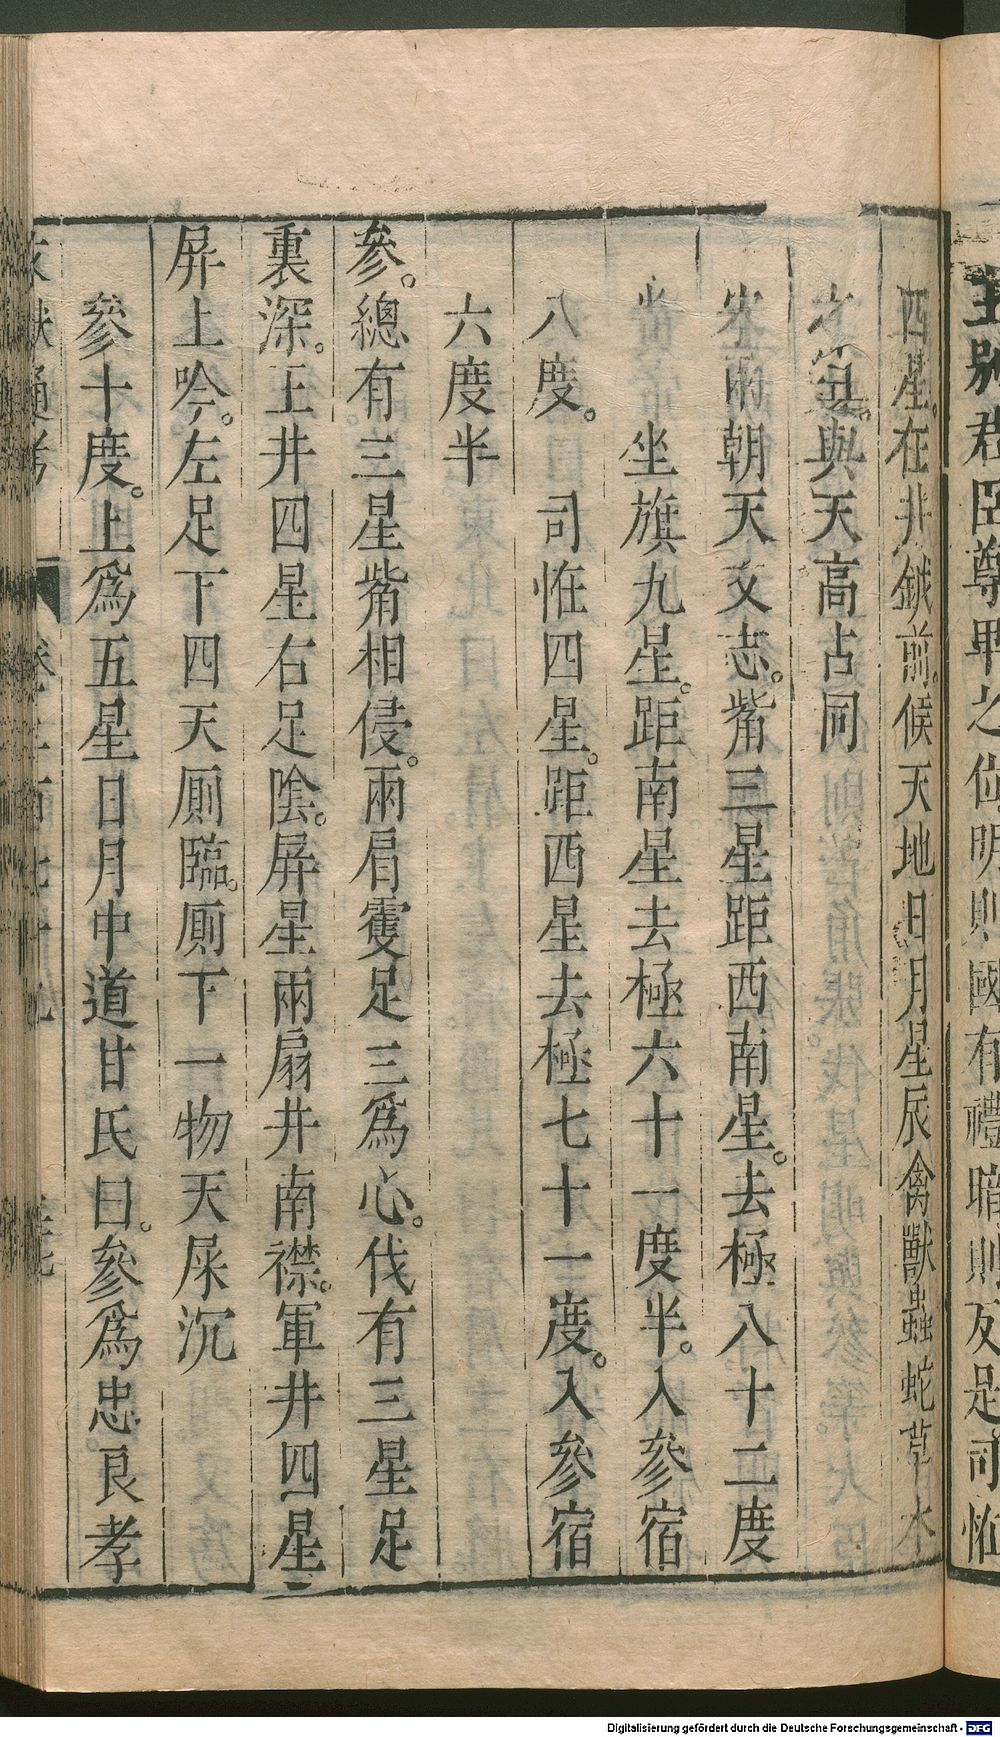 主別君臣尊卑之位明則國有禮暗則反是司怪
四星在井鉞前候天地日月星辰禽獸蟲蛇草木
與天高占同
宋兩朝天文志觜三星距西南星去極八十二度
坐旗九星距南星去極六十一度半入參宿
八度 司怪四星距西星去極七十一度入參宿
六度半
參總有三星觜相侵兩肩雙足三為心伐有三星足
裏深玉井四星右足陰屏星兩扇井南襟軍井四星
屏上吟左足下四天廁臨廁下一物天屎沉
參十度上為五星日月中道甘氏曰參為忠良孝
文獻通考
Digitalisierung gefördert durch die Deutsche Forschungsgemeinschaft - DFG